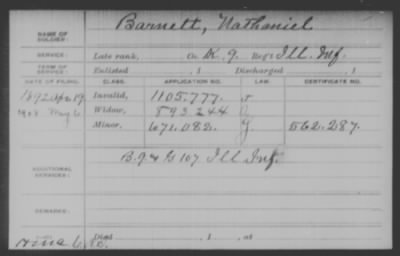 NAME OF SOLDIER: Barnett, Nathaniel
SERVICE: Late rank, Co. K, 9 Reg't Ill. Inf.
TERM OF SERVICE: Enlisted , 1 Discharged , 1
DATE OF FILING. CLASS. APPLICATION NO. LAW. CERTIFICATE NO.
1892 Apr 19 Invalid, 1105.777
May 6 Widow, 893.244
Minor, 671.082. G 562.287.
ADDITIONAL SERVICES: B. 9 & G 107 Ill Inf.
REMARKS:
Died , 1 , at